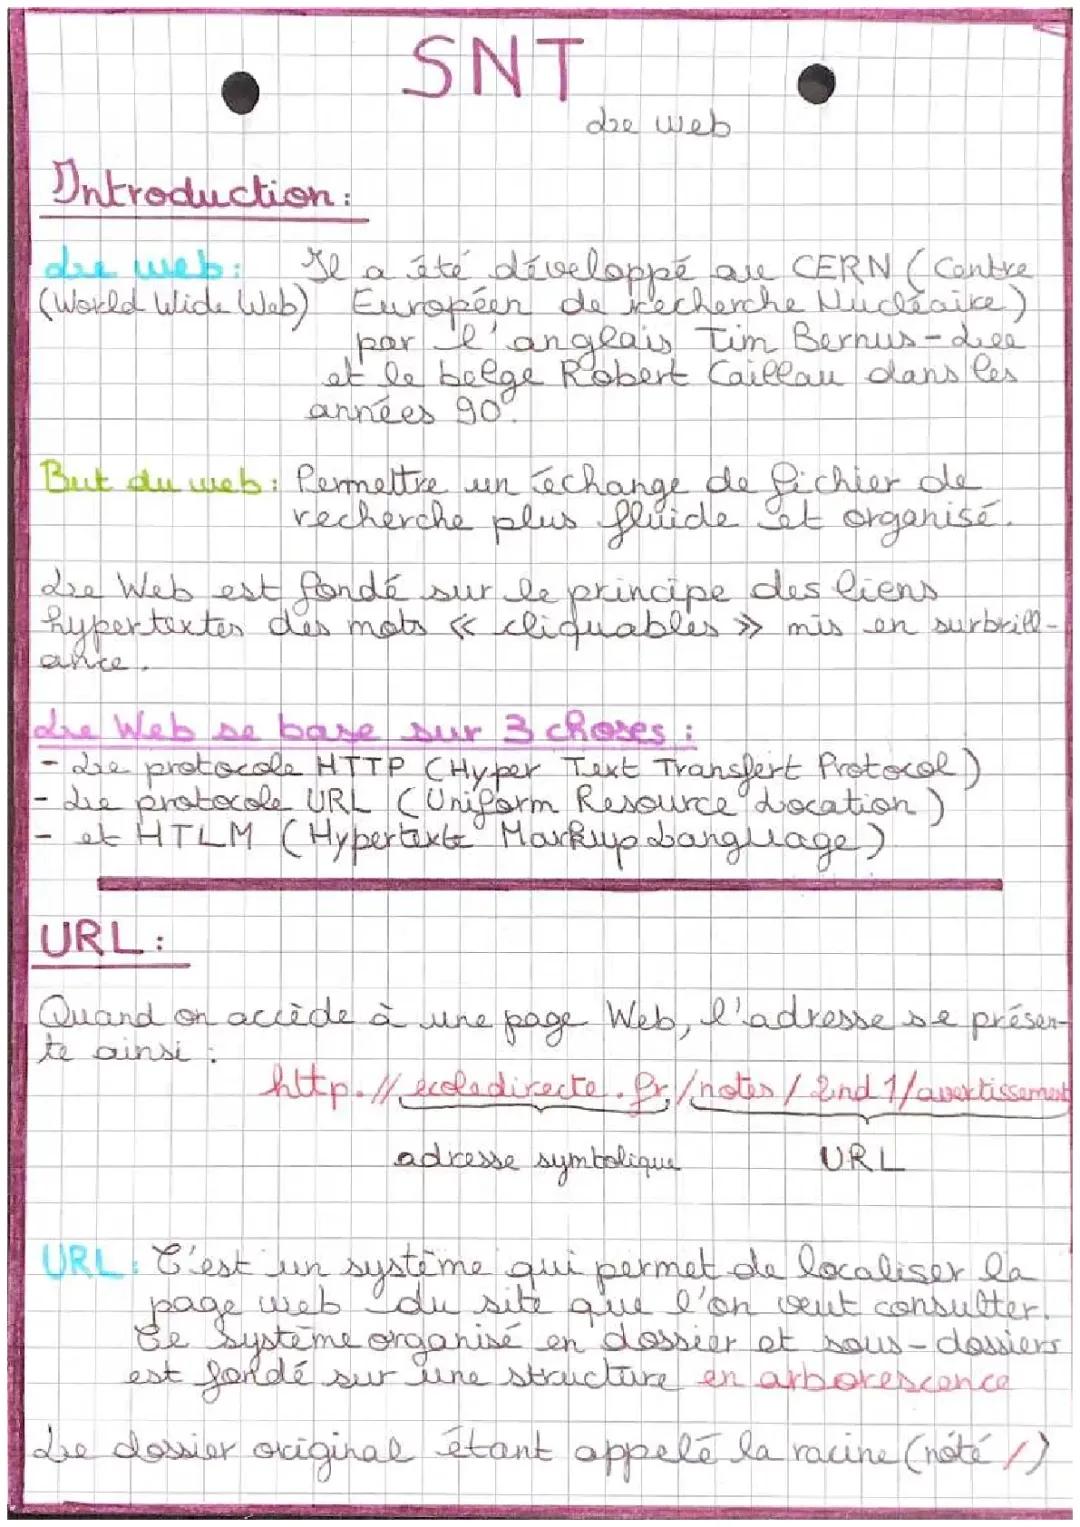 SNT
Le web
Introduction :
Le web : Il a été développé au CERN (Centre
(World Wide Web) Européen de recherche Nucléaire)
par l'anglais Tim Bernus-Lee
et le belge Robert Caillau dans les
années 90'.
But du web : Permettre un échange de fichier de
recherche plus fluide et organisé.
Le Web est fondé sur le principe des liens
hypertextes des mots « cliquables » mis en surbrill-
ance.
Le Web se base sur 3 choses :
- Le protocole HTTP (Hyper Text Transfert Protocol)
- Le protocole URL (Uniform Resource Location)
- et HTLM (Hypertexte Markup Language)
URL :
Quand on accède à une page Web, l'adresse se présen-
te ainsi :
http.//ecoledirecte.fr/notes/2nd1/avertissement
adresse symbolique URL
URL : C'est un système qui permet de localiser la
page web du site que l'on veut consulter.
Ce système organisé en dossier et sous-dossiers
est fondé sur une structure en arborescence
Le dossier original étant appelé la racine (noté /)